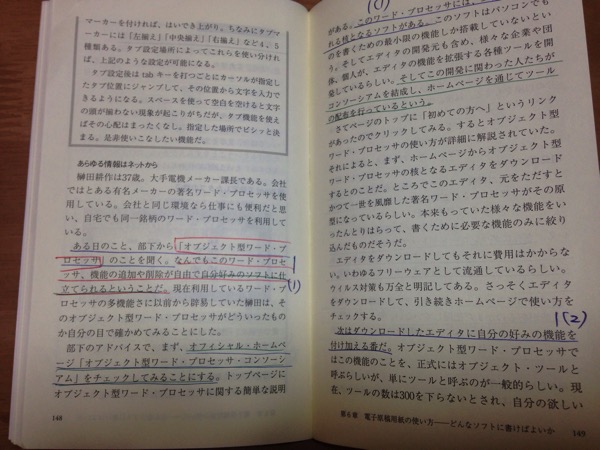 マーカーを付ければ、はいでき上がり。ちなみにタブマ
ーカーには「左揃え」「中央揃え」「右揃え」など4、5
種類ある。タブ設定場所によってこれらを使い分けれ
ば、上記のような設定が可能になる。
タブ設定後はtabキーを打つごとにカーソルが指定し
たタブ位置にジャンプして、その位置から文字を入力で
きるようになる。スペースを使って空白を空けると文字
の頭が揃わない現象が起こりがちだが、タブ機能を使え
ばその心配はまったくなし。指定した場所でピシッと決
まる。是非使いこなしたい機能だ。
あらゆる情報はネットから
榊田耕作は37歳。大手電機メーカー課長である。会社
ではとある有名メーカーの著名ワード・プロセッサを使
用している。会社と同じ環境なら仕事にも便利だと思
い、自宅でも同一銘柄のワード・プロセッサを利用して
いる。
ある日のこと、部下から「オブジェクト型ワード・プ
ロセッサ」のことを聞く。なんでもこのワード・プロセ
ッサ、機能の追加や削除が自由で自分好みのソフトに仕
立てられるということだ。現在利用しているワード・プ
ロセッサの多機能さに以前から辟易していた榊田は、そ
のオブジェクト型ワード・プロセッサがどういったもの
か自分の目で確かめてみることにした。
部下のアドバイスで、まず、オフィシャル・ホームペ
ージ「オブジェクト型ワード・プロセッサ・コンソーシ
アム」をチェックしてみることにする。トップページに
オブジェクト型ワード・プロセッサに関する簡単な説明
148
(1)
(1)
がある。このワード・プロセッサには、
れる核となるソフトがある。このソフトはパソコンでも
のを書くための最小限の機能しか搭載していないとい
う。そしてエディタの開発元も含め、様々な企業や団
体、個人が、エディタの機能を拡張する各種ツールを開
発しているらしい。そしてこの開発に関わった人たちが
コンソーシアムを結成し、ホームページを通じてツール
の配布を行っているという。
さてページのトップに「初めての方へ」というリンク
があったのでクリックしてみる。するとオブジェクト型
ワード・プロセッサの使い方が詳細に解説されていた。
それによると、まず、ホームページからオブジェクト型
ワード・プロセッサの核となるエディタをダウンロード
するとのことだ。ところでこのエディタ、元をただすと
かつて一世を風靡した著名ワード・プロセッサがその原
型になっているらしい。本来もっていた様々な機能をい
ったんとりはらって、書くために必要な機能のみに絞り
込んだものだそうだ。
エディタをダウンロードしてもそれに費用はかからな
い、いわゆるフリーウェアとして流通しているらしい。
ウィルス対策も万全と明記してある。さっそくエディタ
をダウンロードして、引き続きホームページで使い方を
チェックする。
1(2)
次はダウンロードしたエディタに自分の好みの機能を
付け加える番だ。オブジェクト型ワード・プロセッサで
はこの機能のことを、正式にはオブジェクト・ツールと
呼ぶらしいが、単にツールと呼ぶのが一般的らしい。現
在、ツールの数は300を下らないとされ、自分の欲しい
第6章 電子原稿用紙の使い方――どんなソフトに書けばよいか
149